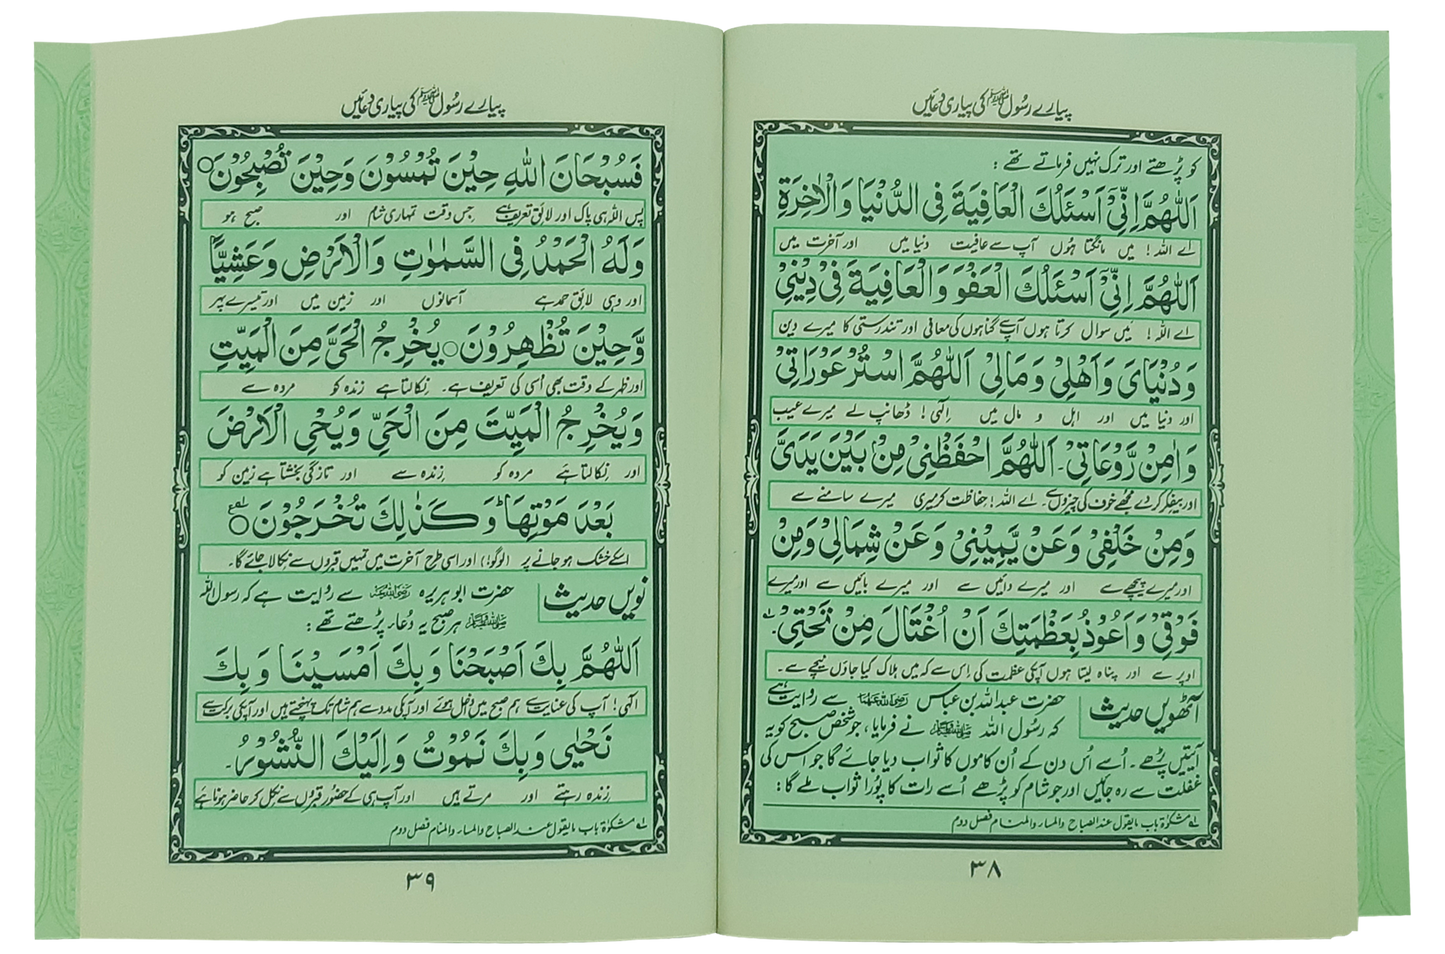 پیارے رسول ﷺ کی پیاری دعائیں
کو پڑھتے اور ترک نہیں فرماتے تھے :
اَللّٰهُمَّ اِنِّیْۤ اَسْئَلُكَ الْعَافِیَةَ فِی الدُّنْیَا وَالْاٰخِرَةِ
اے اللہ! میں مانگتا ہوں آپ سے عافیت دنیا میں اور آخرت میں
اَللّٰهُمَّ اِنِّیْۤ اَسْئَلُكَ الْعَفْوَ وَالْعَافِیَةَ فِیْ دِیْنِیْ
اے اللہ! میں سوال کرتا ہوں آپ سے گناہوں کی معافی اور تندرستی کا میرے دین
وَدُنْیَایَ وَاَهْلِیْ وَمَالِیْ اَللّٰهُمَّ اسْتُرْ عَوْرَاتِیْ
اور دنیا میں اور اہل و مال میں الٰہی! ڈھانپ لے میرے عیب
وَاٰمِنْ رَّوْعَاتِیْ۔ اَللّٰهُمَّ احْفَظْنِیْ مِنْۢ بَیْنِ یَدَیَّ
اور بیفکر کر دے مجھے خوف کی چیزوں سے۔ اے اللہ! حفاظت کر میری میرے سامنے سے
وَمِنْ خَلْفِیْ وَعَنْ یَّمِیْنِیْ وَعَنْ شِمَالِیْ وَمِنْ
اور میرے پیچھے سے اور میرے دائیں سے اور میرے بائیں سے اور میرے
فَوْقِیْ وَاَعُوْذُ بِعَظَمَتِكَ اَنْ اُغْتَالَ مِنْ تَحْتِیْ۔ لہ
اوپر سے اور پناہ لیتا ہوں آپکی عظمت کی اِس سے کہ میں ہلاک کیا جاؤں نیچے سے۔
آٹھویں حدیث حضرت عبداللہ بن عباس رضی اللہ عنہما سے روایت ہے
کہ رسول اللہ ﷺ نے فرمایا، جو شخص صبح کو یہ
آیتیں پڑھے۔ اُسے اُس دن کے اُن کاموں کا ثواب دیا جائے گا جو اس کی
غفلت سے رہ جائیں اور جو شام کو پڑھے اُسے رات کا پُورا ثواب ملے گا :
لہ مشکوٰۃ باب ما یقول عند الصباح والمساء والمنام فصل دوم
٣٨
پیارے رسول ﷺ کی پیاری دعائیں
فَسُبْحَانَ اللّٰهِ حِیْنَ تُمْسُوْنَ وَحِیْنَ تُصْبِحُوْنَ○
پس اللہ ہی پاک اور لائق تعریف ہے جس وقت تمہاری شام اور صبح ہو
وَلَهُ الْحَمْدُ فِی السَّمٰوٰتِ وَالْاَرْضِ وَعَشِیًّا
اور وہی لائق حمد ہے آسمانوں اور زمین میں اور تیسرے پہر
وَّحِیْنَ تُظْهِرُوْنَ○ یُخْرِجُ الْحَیَّ مِنَ الْمَیِّتِ
اور ظہر کے وقت بھی اُسی کی تعریف ہے۔ نکالتا ہے زندہ کو مردہ سے
وَیُخْرِجُ الْمَیِّتَ مِنَ الْحَیِّ وَیُحْیِ الْاَرْضَ
اور نکالتا ہے مردہ کو زندہ سے اور تازگی بخشتا ہے زمین کو
بَعْدَ مَوْتِهَا ط وَكَذٰلِكَ تُخْرَجُوْنَ○
اسکے خشک ہو جانے پر (لوگو!) اور اسی طرح آخرت میں تمہیں قبروں سے نکالا جائے گا۔
نویں حدیث حضرت ابوہریرہ رضی اللہ عنہ سے روایت ہے کہ رسول اللہ
ﷺ ہر صبح یہ دُعا پڑھتے تھے :
اَللّٰهُمَّ بِكَ اَصْبَحْنَا وَبِكَ اَمْسَیْنَا وَبِكَ
الٰہی! آپ کی عنایت سے ہم صبح میں داخل ہوئے اور آپکی مدد سے ہم شام تک پہنچتے ہیں اور آپکی برکت سے
نَحْیٰی وَبِكَ نَمُوْتُ وَاِلَیْكَ النُّشُوْرُ۔
زندہ رہتے اور مرتے ہیں اور آپ ہی کے حضور قبروں سے نکل کر حاضر ہونا ہے
لہ مشکوٰۃ باب ما یقول عند الصباح والمساء والمنام فصل دوم
٣٩